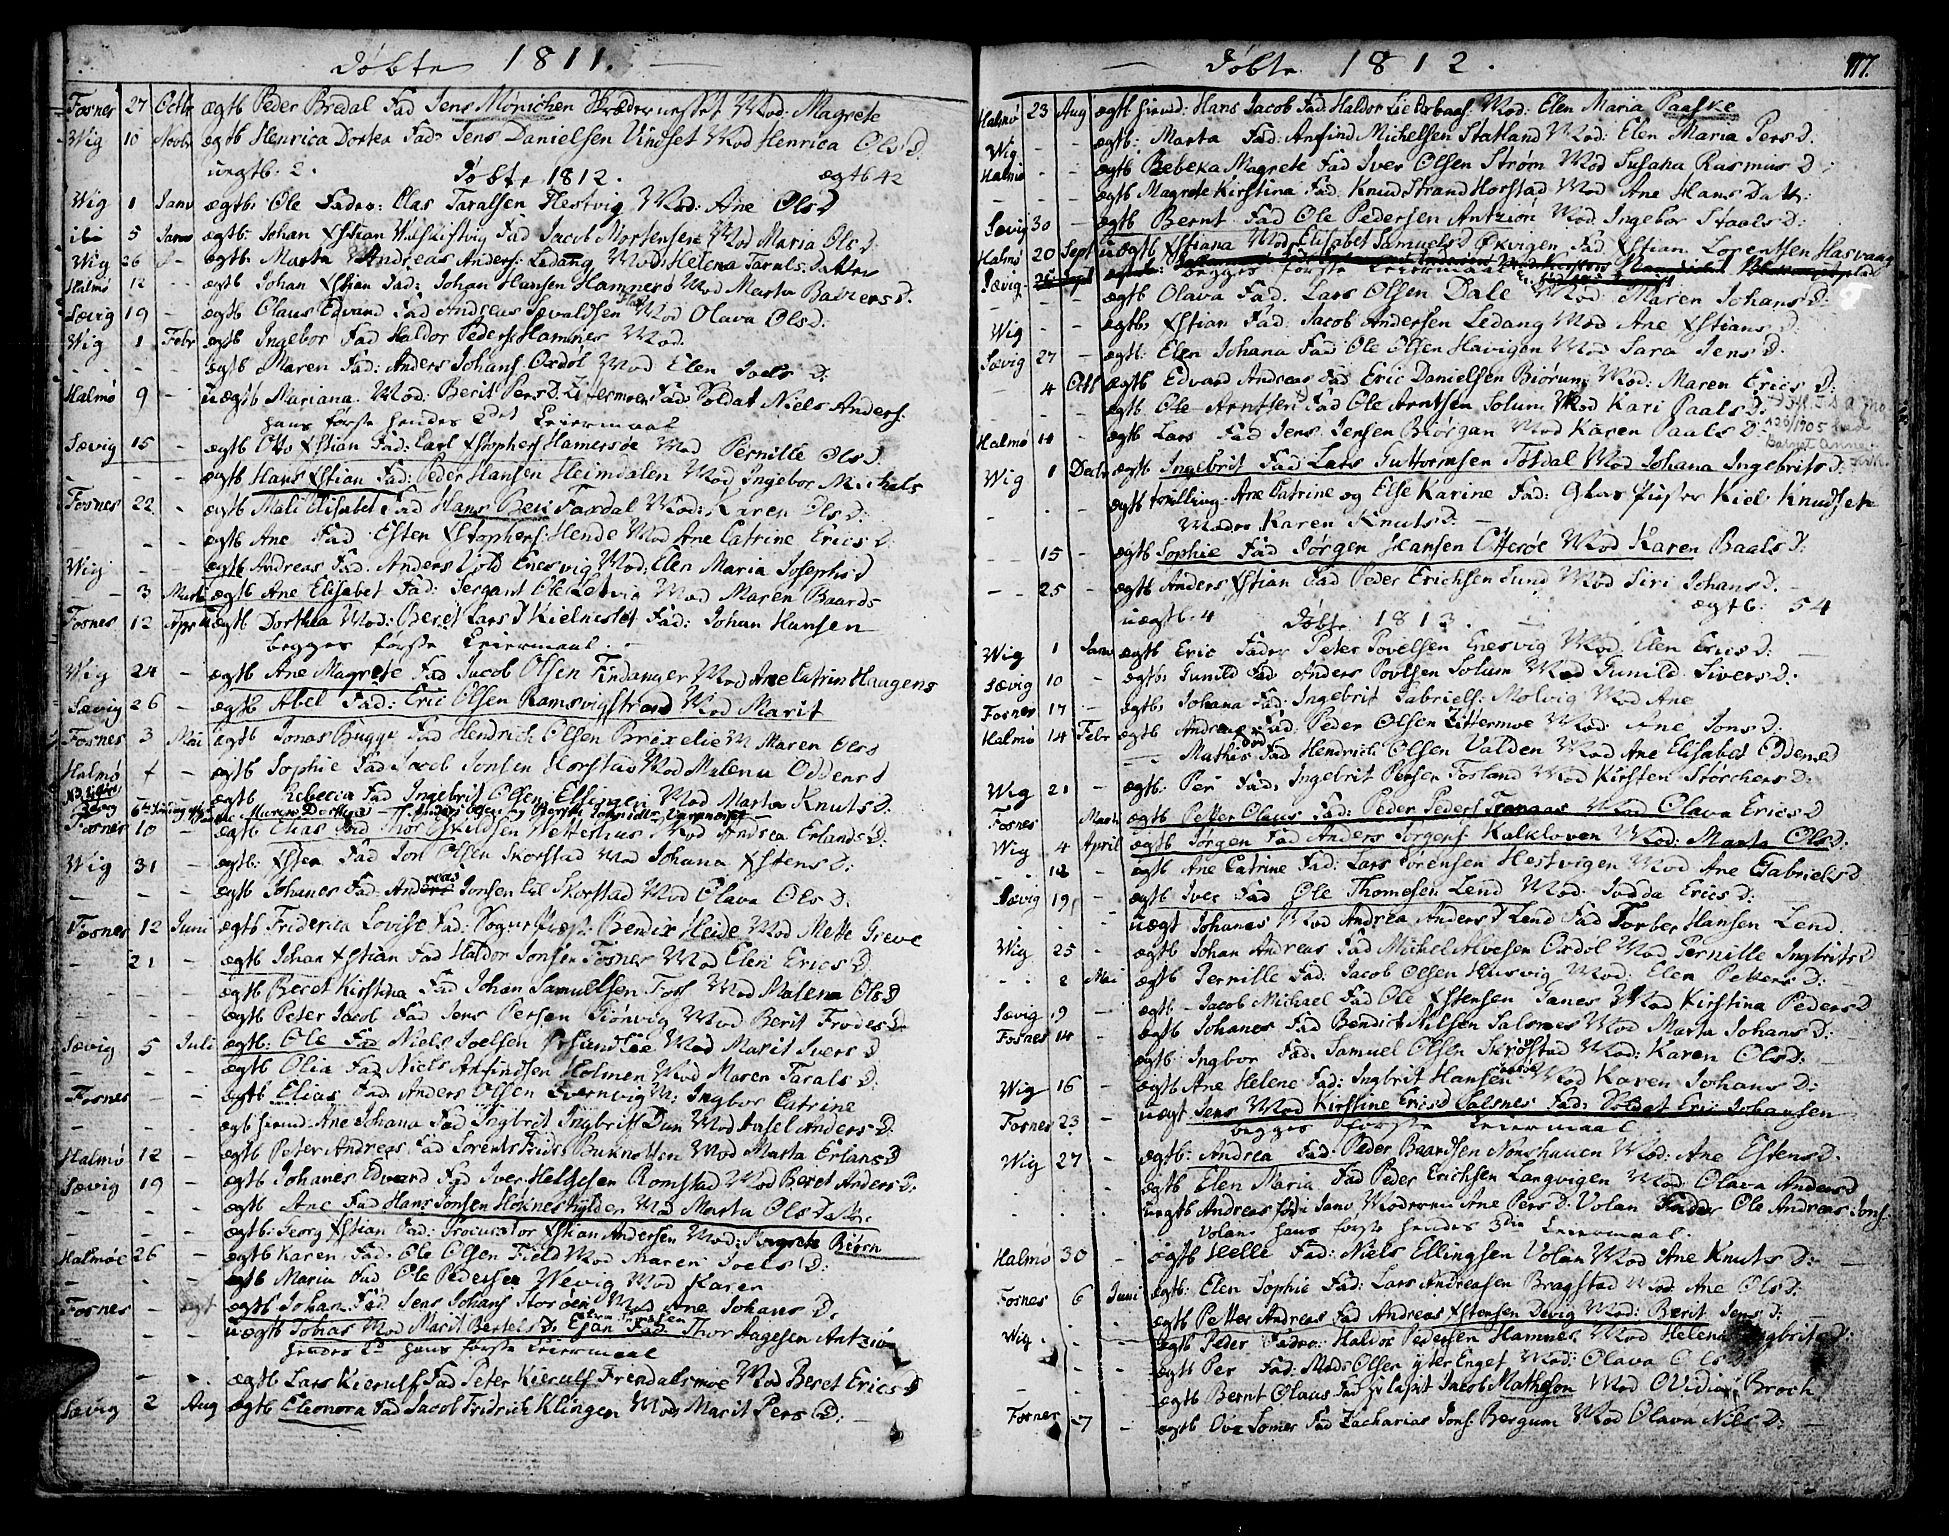 Døbte 1811.
Fosner 27 Octbr ægtb Peder Bredal Fad Jens Mönichen Mod: Magrete
Wig 10 Novbr ægtb Henrica Dortea Fad: Jens Danielsen Vindset Mod Henrica Ols D.
uægtb. 2. Døbte 1812. ægtb 42
Wig 1 Janv ægtb: Ole Fader: Olas Taralsen Hestvig Mod: Ane Ols D
ibi 5 Janv ægtb. Johan Xstian Fad Jacob Mortensen Mod Maria Ols D.
Wig 26 - ægtb. Marta Fad Andreas Anders: Ledang Mod: Helena Tarals: Datter
Halmø 12 - ægtb Johan Xstian Fad: Johan Hansen Hamnerø Mod Marta D.
Sævig 19 - ægtb Olaus Edvard Fad Andreas Mod Olava Ols D:
Wig 1 Febr ægtb Ingebor Fad Haldor Peders: Hamnes Mod.
- - - ægtb Maren Fad: Anders Johans: Oxdol Mod Elen Joels D:
Halmø 9 - uægtb Mariana. Mod: Berit Pers D. Fad: Soldat Niels Anders:
hans første hendes 2det Leiermaal
Sævig 15 - ægtb Otto Xstian Fad: Carl Xstophers Hamersøe Mod Pernille Ols D.
- - - ægtb Hans Xstian Fad: Peder Hansen Heimdalen Mod Ingebor Michals
Fosnes 22 - ægtb Mali Elisabet Fad Hans Faxdal Mod: Karen Ols D:
- - - ægtb Ane Fad Esten Xstophers: Hende Mod Ane Catrine Erics D:
Wig - - ægtb Andreas Fad. Anders Vold Enesvig Mod: Elen Maria Josephs D
- 3 Marti ægtb Ane Elisabet Fad: Sergant Ole Mod Maren Baards
Fosnes 12 April uægtb Dorthea Mod: Beret Lars D Kielnesset Fad: Johan Hansen
begges første Leiermaal -
Wig 24 - ægtb Ane Magrete Fad Jacob Olsen Findanger Mod Ane Catrin Haagens
Sævig 26 - ægtb Abel Fad: Eric Olsen Ramsvigstrand Mod Marit
Fosnes 3 Mai ægtb Jonas Bugge Fad Hendrich Olsen Brixelie M Maren Ols D
Halmø - ægtb Sophie Fad Jacob Jonsen Horstad Mod Malena Oddens D
ægtb Rebecca Fad Ingebrit Olsen Mod Marta Knuts D.
Fosnes 10 - ægtb Elias Fad Mod Andrea Erlands D.
Wig 31 - ægtb. Fad Jon Olsen Skorstad Mod Johana Xstens D:
- - - ægtb Johanes Fad Andreas Jonsen Skorstad Mod Olava Ols D:
Fosnes 12 Juni ægtb Friderica Lovise Fad: Bendix Heide Mod Mette Greve
- 21 - ægtb Johan Xstian Fad Haldor Jonsen Fosnes Mod Elen Erics D
- - - ægtb Beret Kirstina Fad Johan Samuelsen Mod Malena Ols D
- - - ægtb Peter Jacob Fad Jens Persen Mod Berit Frodes D
Sævig 5 Juli ægtb: Ole Fad Niels Joelsen Mod Marit Ivers D
- - - ægtb Olia Fad Niels Arfindsen Holmen Mod Maren Tarals D:
Fosnes - - ægtb Elias Fad Anders Olsen M: Ingbor Catrine
- - - ægtb Ane Johana Fad Ingbrit Ingbrits Dun Mod Assel Anders D:
Halmø 12 - ægtb Peter Andreas Fad Lorents Mod Marta Erlans D
Sævig 19 - ægtb Johanes Edvard Fad Iver Helgesen Romstad Mod Beret Anders D:
- - - ægtb Ane Fad Hans Jonsen Mod Marta Ols Datter
- - - ægtb: Georg Xstian Fad: Procurator Xstian Andersen Mod: Magrete
Halmøe 26 - ægtb Karen Fad: Ole Olsen Mod Maren Joels D:
- - - ægtb Maria Fad Ole Pedersen Wevig Mod Karen
Fosnes - ægtb Johan Fad Jens Johans: Storøen Mod Ane Johans D.
- - - uægtb Tobias Mod Marit Bertels D. Fad Thor Aagesen
hendes 2det hans første Leiermaal
- - ægtb Lars Kierulf Fad Peter Kierulf Mod Beret Erics D
Sævig 2 Aug ægtb Eleonora Fad Jacob Fridrich Klingen Mod Marit Pers D: -
Døbte 1812. 117.
Halmø 23 Aug ægtb Hans Jacob Fad Haldor Mod: Elen Maria Paaske
Wig - - ægtb: Marta Fad: Anfind Michelsen Statland Mod: Elen Maria Pers D.
Halmø - - ægtb Rebeka Magrete Fad Iver Olsen Strøm Mod Susana Rasmus D:
- - - ægtb Magrete Kirstina Fad: Knud Strand Horstad Mod Ane Hans Datt:
Sævig 30 - ægtb Bernt Fad Ole Pedersen Mod: Ingebor Staals D:
Halmø 20 Sept uægtb Xstiana Mod Elisabet Samuels D Fad Xstian Lorentsen
begges første Leiermaal
Sævig
- - - ægtb Olava Fad. Lars Olsen Dale Mod Maren Johans D:
Wig - - ægtb: Xstian Fad: Jacob Andersen Ledang Mod Ane Xstians D:
Sævig 27 - ægtb: Elen Johana Fad Ole Olsen Havigen Mod Sara Jens D:
- 4 Octb ægtb Edvard Andreas Fad Eric Danielsen Mod: Maren Erics D:
- - - ægtb Ole Arntsen Fad Ole Arntsen Solum Mod Kari Paals D:
Halmø 14 - ægtb Lars Fad Jens Jensen Biörgan Mod Karen Paals D:
Wig 1 Decbr ægtb Ingebrit Fad Lars Guttormsen Mod Johana Ingebrits D:
- - - ægtb tvilling. Ane Catrine og Else Karine Fad: Kiel Knudsen
Moder Karen Knuts D: -
- 15 - ægtb Sophie Fad Jörgen Hansen Otterøe Mod Karen Baals D:
- - 25 - ægtb Anders Xstian Fad Peder Erichsen Lund Mod Siri Johans D.
ægtb: 54
uægtb. 4 Døbte 1813.
Wig 1 Janv ægtb Eric Fader Peter Povelsen Enesvig Mod Elen Erics D:
Sævig 10 - ægtb: Gunild Fad Anders Povlsen Solum Mod Gunild Sivers D:
Fosnes 17 - ægtb: Johana Fad: Ingebrit Gabriels: Molvig Mod Ane
Halmø 14 Febr ægtb Andreas Fad Peder Olsen Zittermoe Mod: Ane Jons D:
- - Mathis Fad Hendrich Olsen Valden Mod Ane Elisabet Oddens D
Wig 21 - ægtb: Per Fad: Ingebrit Persen Fosland Mod Kirsten Störchers D:
Fosnes Marti ægtb Petter Olaus Fad: Peder Peders: Mod Olava Erics D
Wig 4 April ægtb Jørgen Fad Anders Jørgens: Kalkloven Mod: Marta Ols D:
- - 12 - ægtb Ane Catrine Fad: Lars Sørensen Hestvigen Mod Ane Gabriels D
Sævig 19 - ægtb Iver Fad Ole Thomesen Lend Mod: Erics D:
uægt Johanes Mod Andrea Anders D Lend Fad Torber Hansen Lend.
Wig 25 - ægtb Johan Andreas Fad Michel Oxdol Mod Pernille Ingbrits D
- - 2 Mai ægtb Pernille Fad: Jacob Olsen Husvig Mod: Elen Petters D: -
Sævig 9 - ægtb - Jacob Michael Fad Ole Xstensen Mod Kirstina Peders D
Fosnes 14 - ægtb Johanes Fad Bendict Nilsen Salsnes Mod Marta Johans D:
- - - ægtb: Ingbor Fad: Samuel Olsen Mod: Karen Ols D:
Wig 16 - ægtb Ane Helene Fad: Ingbrit Hansen Mod Karen Johans D:
Fosner 23 - uægt Jens Mod Kirstine Erics D Salsnes Fad: Soldat Eric Johansen
begges første Leiermaal
Wig 27 - ægtb: Andrea Fad: Peder Baardsen Mod: Ane Estens D.
ægtb Elen Maria Fad Peder Erichsen Langvigen Mod Olava Anders D
uægtb Andreas Moderen Ane Pers D Volan Fader Ole Andreas Jons:
Volan hans første hendes 3die Leiermaal.
Halmø 30 ægtb Helle Fad: Niels Ellingsen Volan Mod Ane Knuts D:
Fosnes 6 Juni ægtb: Elen Sophie Fad: Lars Andreasen Bragstad Mod: Ane Ols D:
ægtb Petter Andreas Fad Andreas Xstensen Devig Mod: Berit Jens D:
Wig ægtb Peder Fader: Haldor Pedersen Hamnes Mod Helena Ingbrits D:
ægtb Per Fad: Mads Olsen ytter Enget Mod: Olava Ols
ægtb Bernt Olaus Fad Jacob Mathesen Mod Ovidia Broch
Fosner 7 - ægtb Ove Fad Zacharias Jons: Bergum Mod Olava Nils D: -